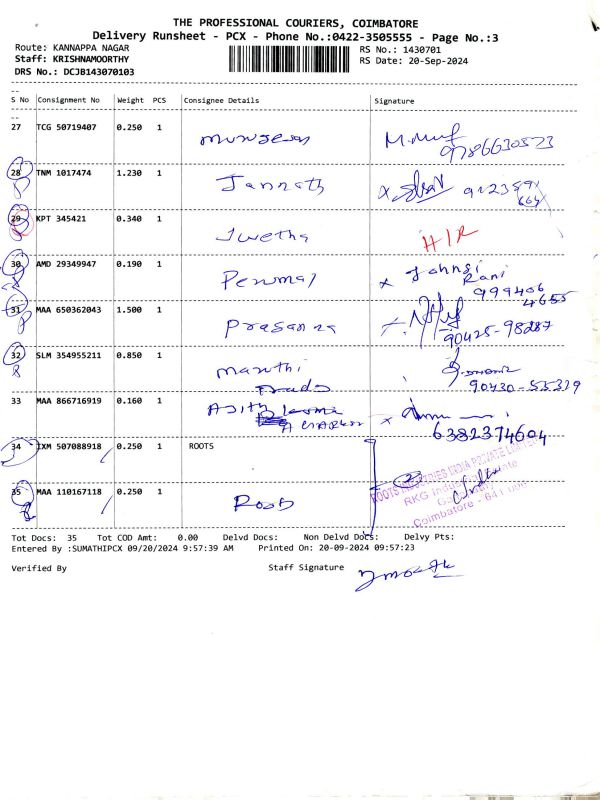 THE PROFESSIONAL COURIERS, COIMBATORE
Delivery Runsheet - PCX - Phone No.:0422-3505555 - Page No.:3
Route: KANNAPPA NAGAR
RS No.: 1430701
Staff: KRISHNAMOORTHY
RS Date: 20-Sep-2024
DRS No.: DCJB143070103
S No Consignment No Weight PCS Consignee Details Signature
27 TCG 50719407 0.250 1 Murugesan
9786630523
28 TNM 1017474 1.230 1 Jannath
29 KPT 345421 0.340 1 Swetha H/R
30 AMD 29349947 0.190 1 Perumal x Johnsi
Rani
999406
4655
31 MAA 650362043 1.500 1 Prasanna
90425-98287
32 SLM 354955211 0.850 1 Maruthi
Trads
90430-55339
33 MAA 866716919 0.160 1 Ajith
6382374604
34 IXM 507088918 0.250 1 ROOTS
35 MAA 110167118 0.250 1 Roots
ROOTS INDUSTRIES INDIA PRIVATE LIMITED
RKG Industrial Estate
Coimbatore - 641
Tot Docs: 35 Tot COD Amt: 0.00 Delvd Docs: Non Delvd Docs: Delvy Pts:
Entered By :SUMATHIPCX 09/20/2024 9:57:39 AM Printed On: 20-09-2024 09:57:23
Verified By Staff Signature